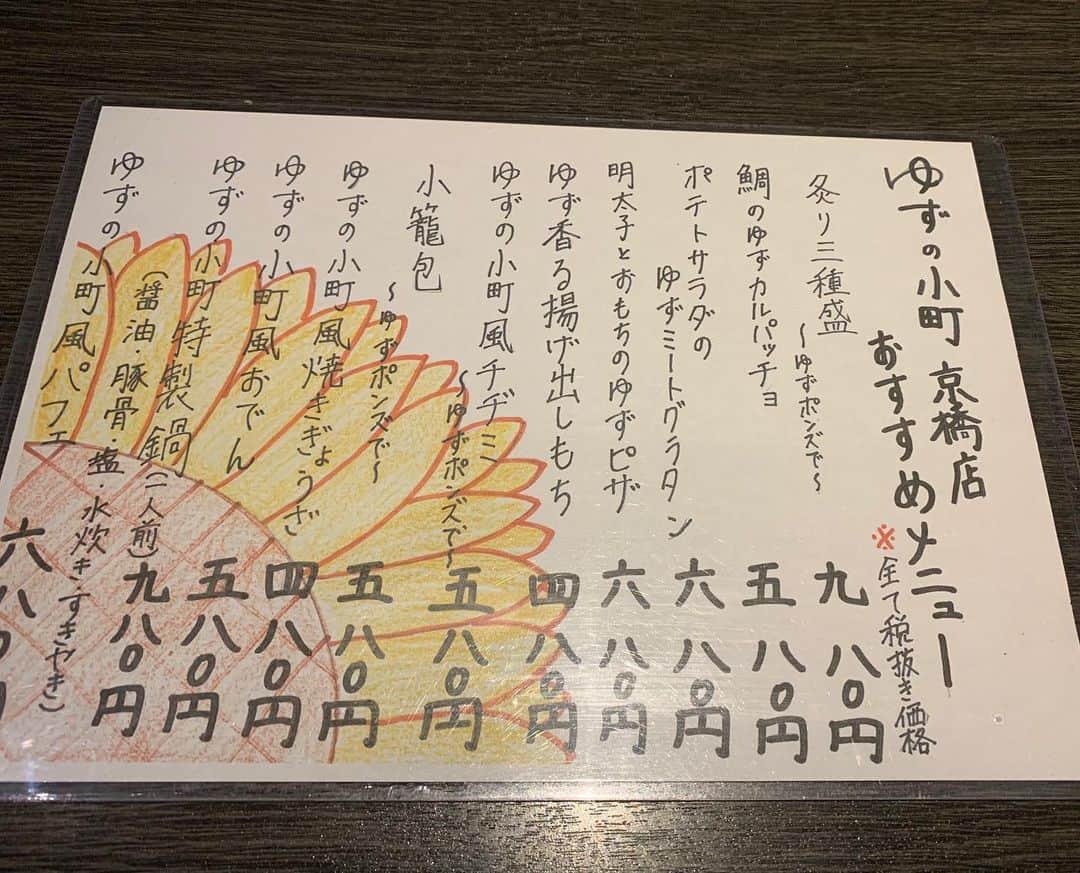 ゆずの小町 京橋店
おすすめメニュー
※全て税抜き価格
炙り三種盛
～ゆずポンズで～
九八0円
鯛のゆずカルパッチョ
五八0円
ポテトサラダの
ゆずミートグラタン
六八0円
明太子とおもちのゆずピザ
六八0円
ゆず香る揚げ出しもち
四八0円
ゆずの小町風チヂミ
～ゆずポンズで～
五八0円
小籠包
～ゆずポンズで～
五八0円
ゆずの小町風焼きぎょうざ
四八0円
ゆずの小町風おでん
五八0円
ゆずの小町特製鍋(一人前)
九八0円
(醤油・豚骨・塩・水炊き・すきヤき)
ゆずの小町風パフェ
六八0円